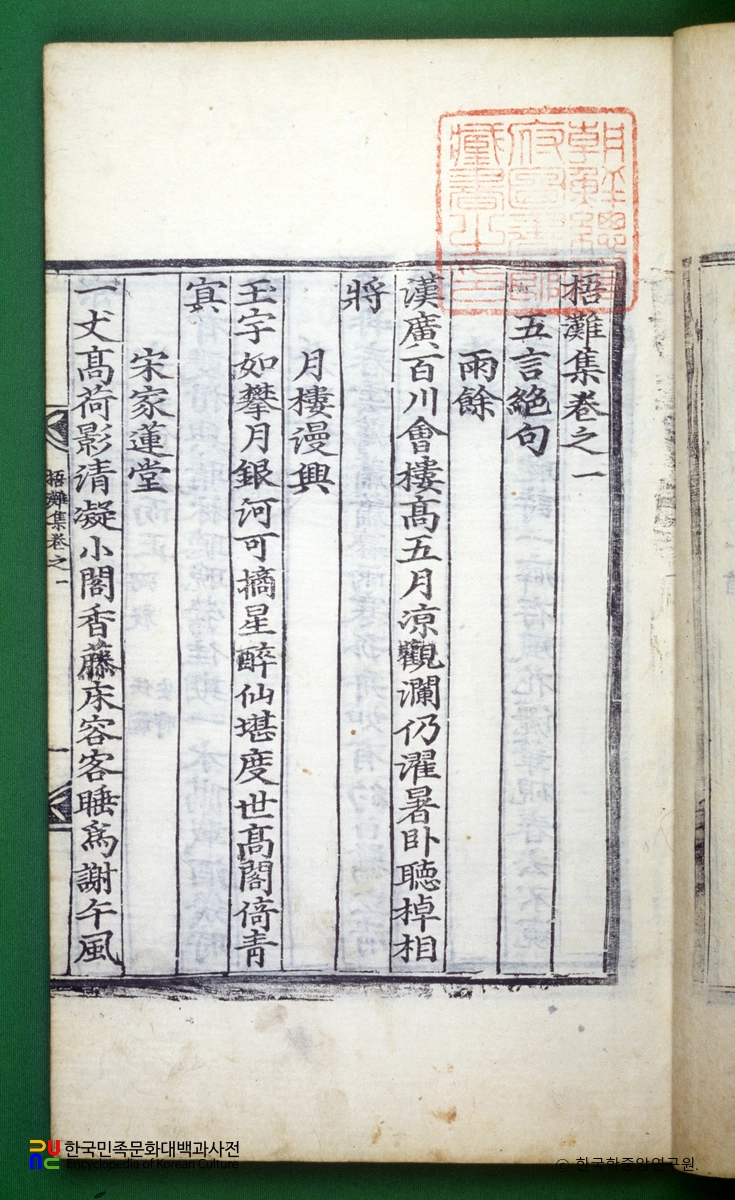 梧灘集卷之一
五言絶句
雨餘
漢廣百川會樓高五月凉觀瀾仍濯暑卧聽棹相
將
月樓謾興
玉宇如攀月銀河可摘星醉仙堪度世高閣倚靑
宾
宋家蓮堂
一丈高荷影清凝小閣香藤床容客睡爲謝午風
梧灘集卷之一
一
朝鮮總督府圖書館藏書之印
한국민족문화대백과사전
Encyclopedia of Korean Culture
© 한국학중앙연구원.